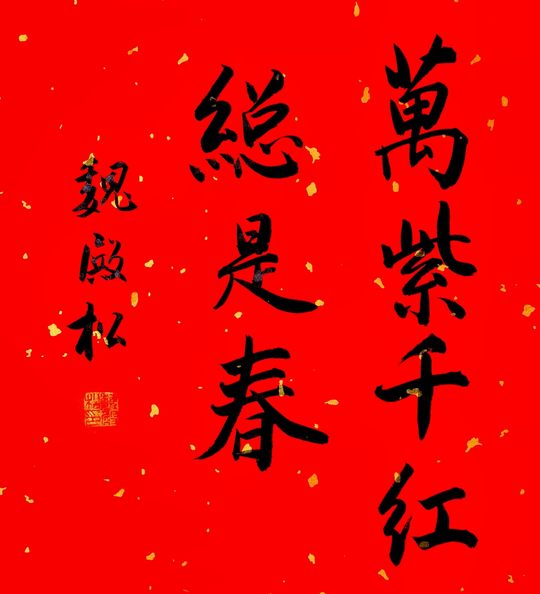 萬紫千红
総是春
魏殿松